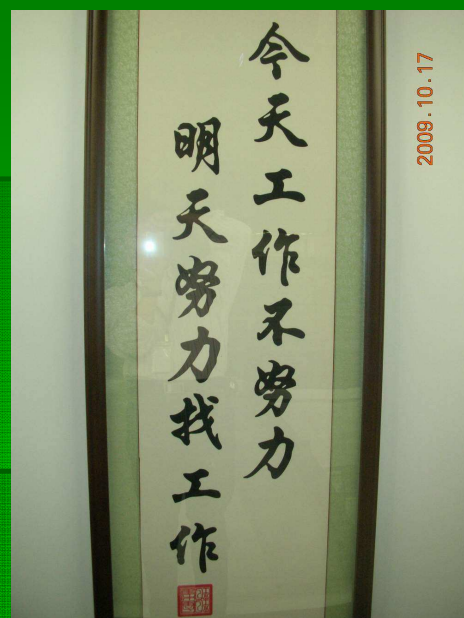 今天工作不努力
明天努力找工作
2009.10.17